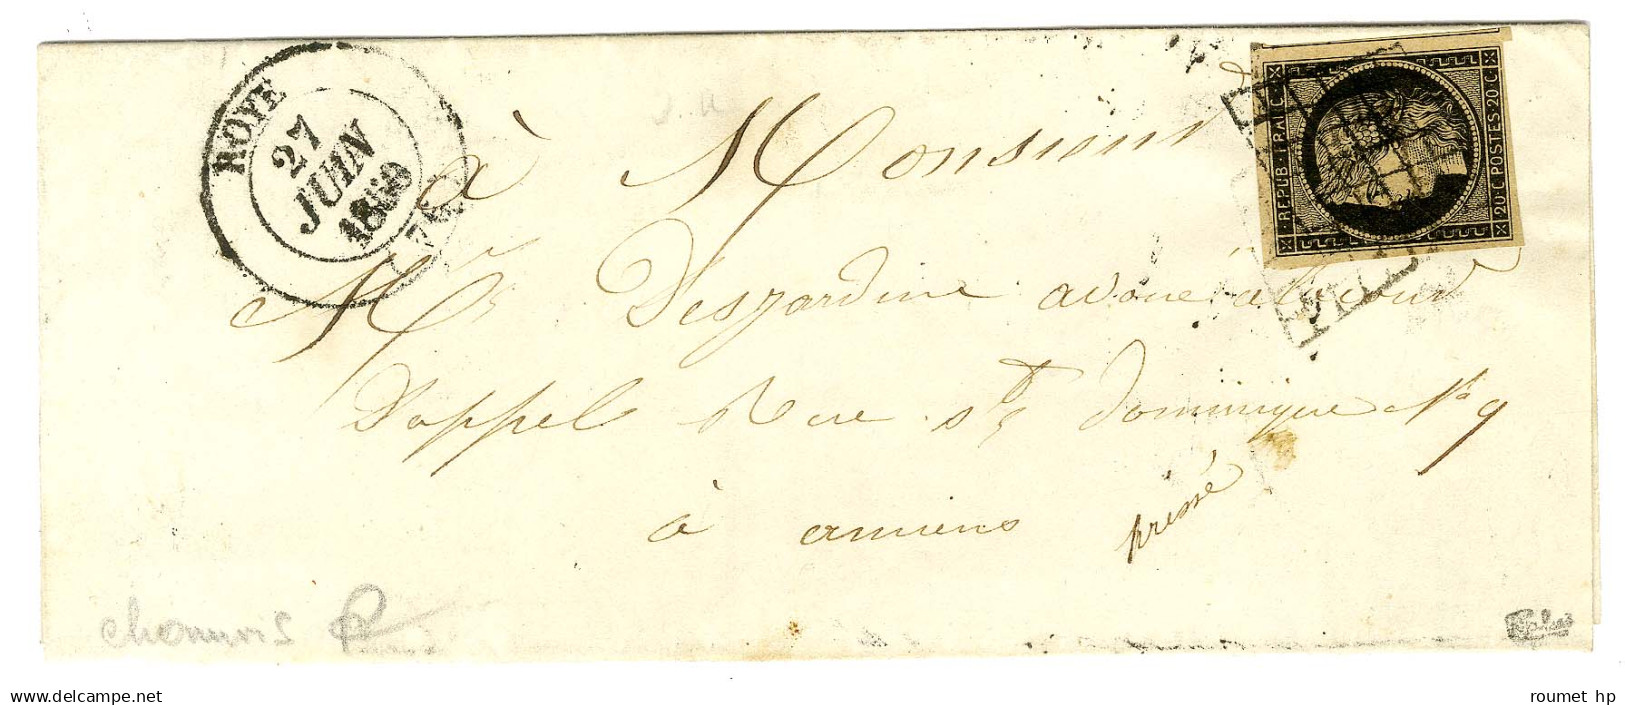 ROYE
27
JUIN
1850
à Monsieur
Mr Desjardins avoué à la cour
D'appel Rue St Dominique No 9
à amiens
pressé
REPUB·FRANC·
20·C·POSTES·20·C·
www.delcampe.net
roumet hp